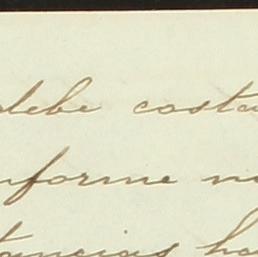 debe costa
nforme n
tancias ha